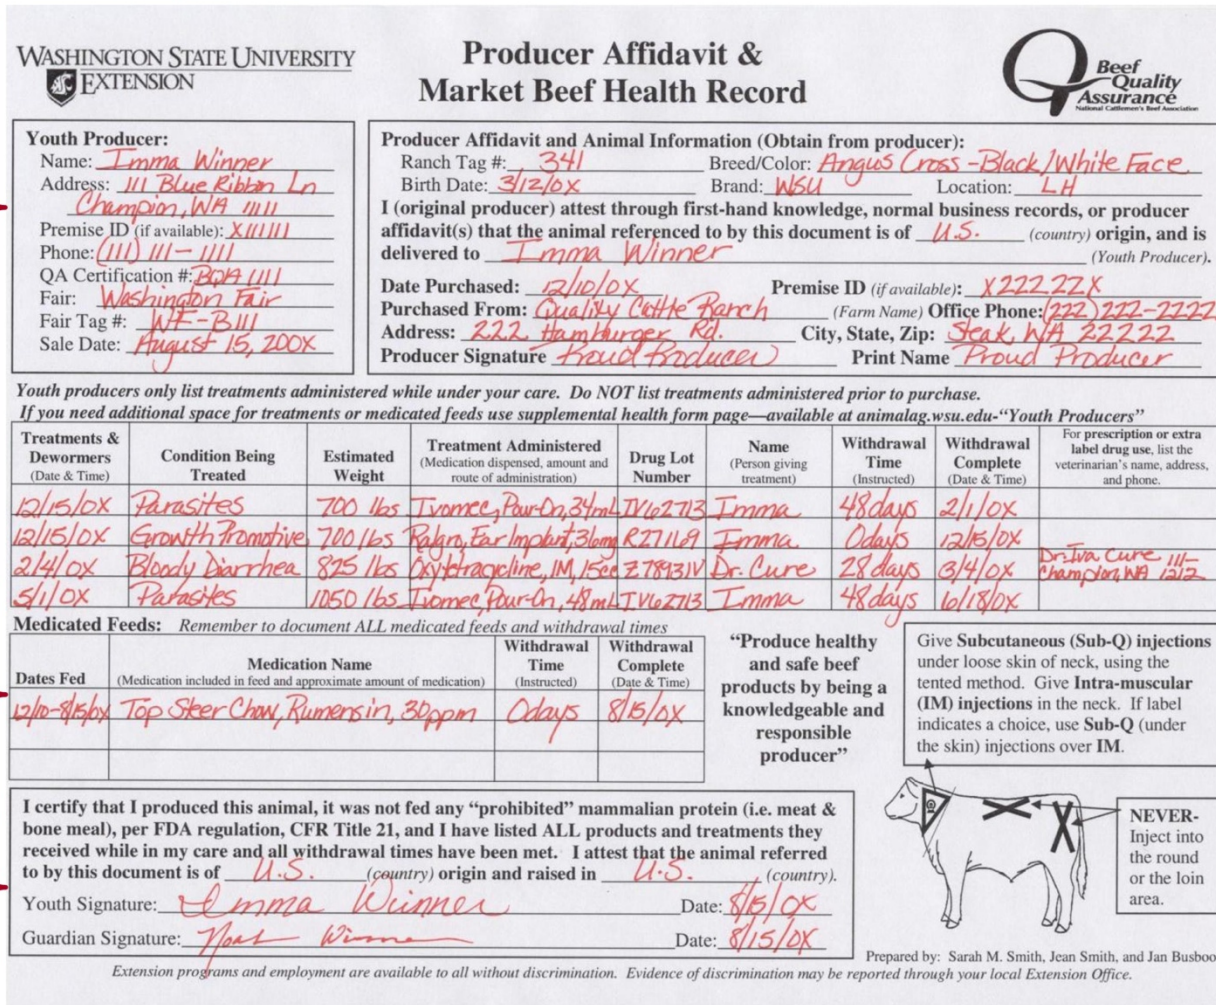 WASHINGTON STATE UNIVERSITY
EXTENSION
Producer Affidavit &
Market Beef Health Record
Beef
Quality
Assurance
National Cattlemen's Beef Association
Youth Producer:
Name: Imma Winner
Address: 111 Blue Ribbon Ln
Champion, WA 11111
Premise ID (if available): X111111
Phone: (111) 111-1111
QA Certification #: BQA 1111
Fair: Washington Fair
Fair Tag #: WF-B111
Sale Date: August 15, 200X
Producer Affidavit and Animal Information (Obtain from producer):
Ranch Tag #: 341 Breed/Color: Angus Cross-Black/White Face
Birth Date: 3/12/0X Brand: WSU Location: LH
I (original producer) attest through first-hand knowledge, normal business records, or producer
affidavit(s) that the animal referenced to by this document is of U.S. (country) origin, and is
delivered to Imma Winner (Youth Producer).
Date Purchased: 12/10/0X Premise ID (if available): X222 22X
Purchased From: Quality Cattle Ranch (Farm Name) Office Phone: (222)222-2222
Address: 222 Hamburger Rd. City, State, Zip: Steak, WA 22222
Producer Signature Proud Producer Print Name Proud Producer
Youth producers only list treatments administered while under your care. Do NOT list treatments administered prior to purchase.
If you need additional space for treatments or medicated feeds use supplemental health form page—available at animalag.wsu.edu-"Youth Producers"
Treatments & Dewormers (Date & Time) Condition Being Treated Estimated Weight Treatment Administered (Medication dispensed, amount and route of administration) Drug Lot Number Name (Person giving treatment) Withdrawal Time (Instructed) Withdrawal Complete (Date & Time) For prescription or extra label drug use, list the veterinarian's name, address, and phone.
12/15/0X Parasites 700 lbs Ivomec, Pour-On, 34mL IV62713 Imma 48days 2/1/0X
12/15/0X Growth Promotive 700 lbs Ralgro, Ear Implant, 36mg R27169 Imma 0days 12/15/0X
2/4/0X Bloody Diarrhea 825 lbs Oxytetracycline, IM, 15cc Z78931V Dr. Cure 28 days 3/4/0X Dr. Iva Cure 111- Champion, WA 1212
5/1/0X Parasites 1050 lbs Ivomec, Pour-On, 48mL IV62713 Imma 48days 6/18/0X
Medicated Feeds: Remember to document ALL medicated feeds and withdrawal times
Dates Fed Medication Name (Medication included in feed and approximate amount of medication) Withdrawal Time (Instructed) Withdrawal Complete (Date & Time)
12/10-8/15/0X Top Steer Chow, Rumensin, 30ppm 0days 8/15/0X
"Produce healthy
and safe beef
products by being a
knowledgeable and
responsible
producer"
Give Subcutaneous (Sub-Q) injections
under loose skin of neck, using the
tented method. Give Intra-muscular
(IM) injections in the neck. If label
indicates a choice, use Sub-Q (under
the skin) injections over IM.
NEVER-
Inject into
the round
or the loin
area.
I certify that I produced this animal, it was not fed any "prohibited" mammalian protein (i.e. meat &
bone meal), per FDA regulation, CFR Title 21, and I have listed ALL products and treatments they
received while in my care and all withdrawal times have been met. I attest that the animal referred
to by this document is of U.S. (country) origin and raised in U.S. (country).
Youth Signature: Imma Winner Date: 8/15/0X
Guardian Signature: Noah Winner Date: 8/15/0X
Prepared by: Sarah M. Smith, Jean Smith, and Jan Busboo
Extension programs and employment are available to all without discrimination. Evidence of discrimination may be reported through your local Extension Office.